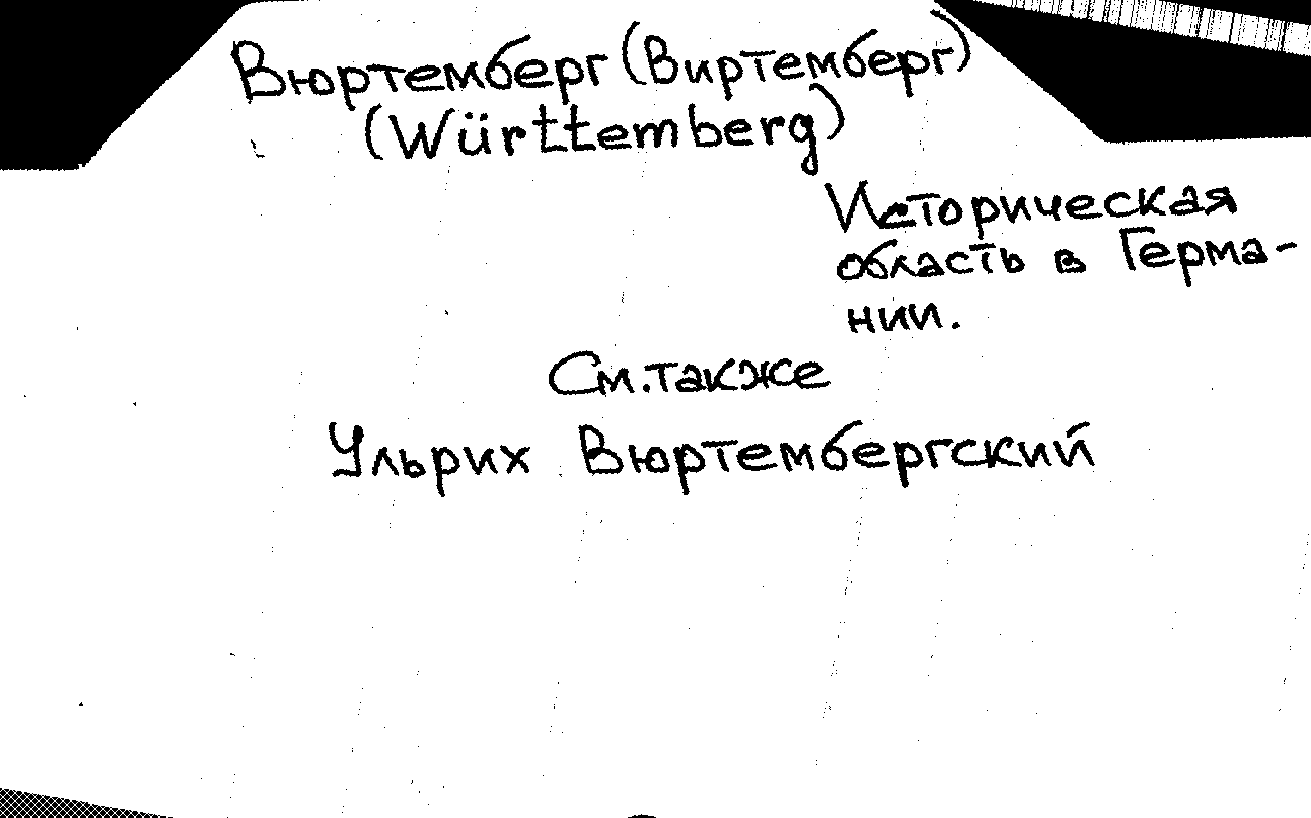 Вюртемберг (Виртемберг)
(Württemberg)
Историческая
область в Герма-
нии.
См. также
Ульрих Вюртембергский